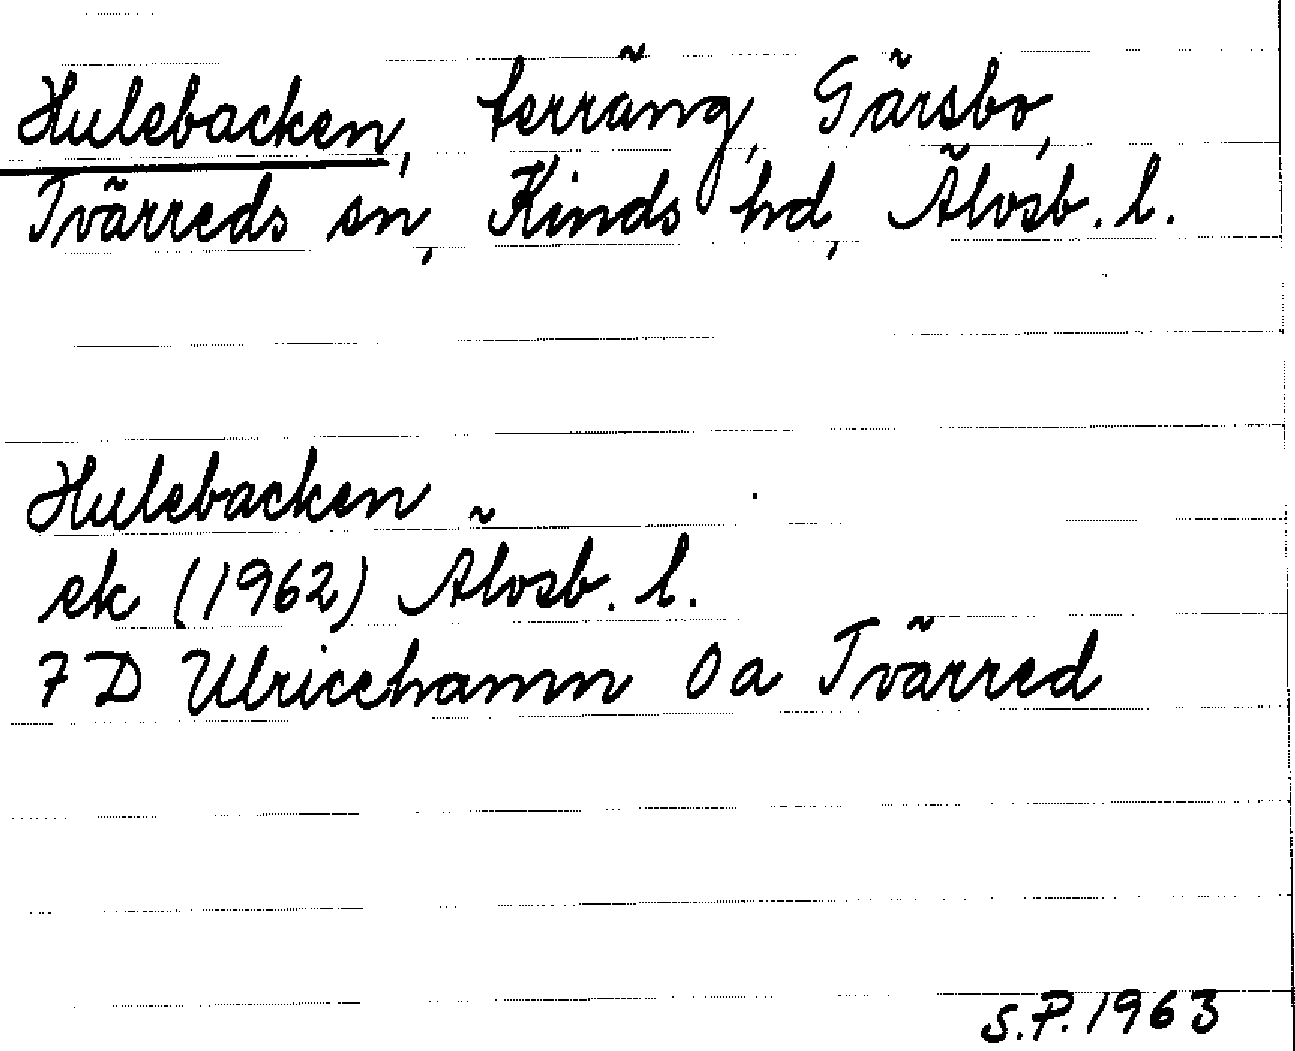 Hulebacken, terräng, Gärsbo,
Tvärreds sn, Kinds hd, Älvsb. l.
Hulebacken
ek (1962) Älvsb. l.
7 D Ulricehamn 0 a Tvärred
S.P. 1963